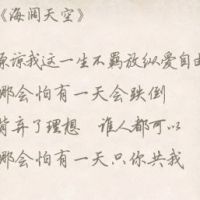 《海阔天空》
原谅我这一生不羁放纵爱自由
那会怕有一天会跌倒
背弃了理想 谁人都可以
那会怕有一天只你共我